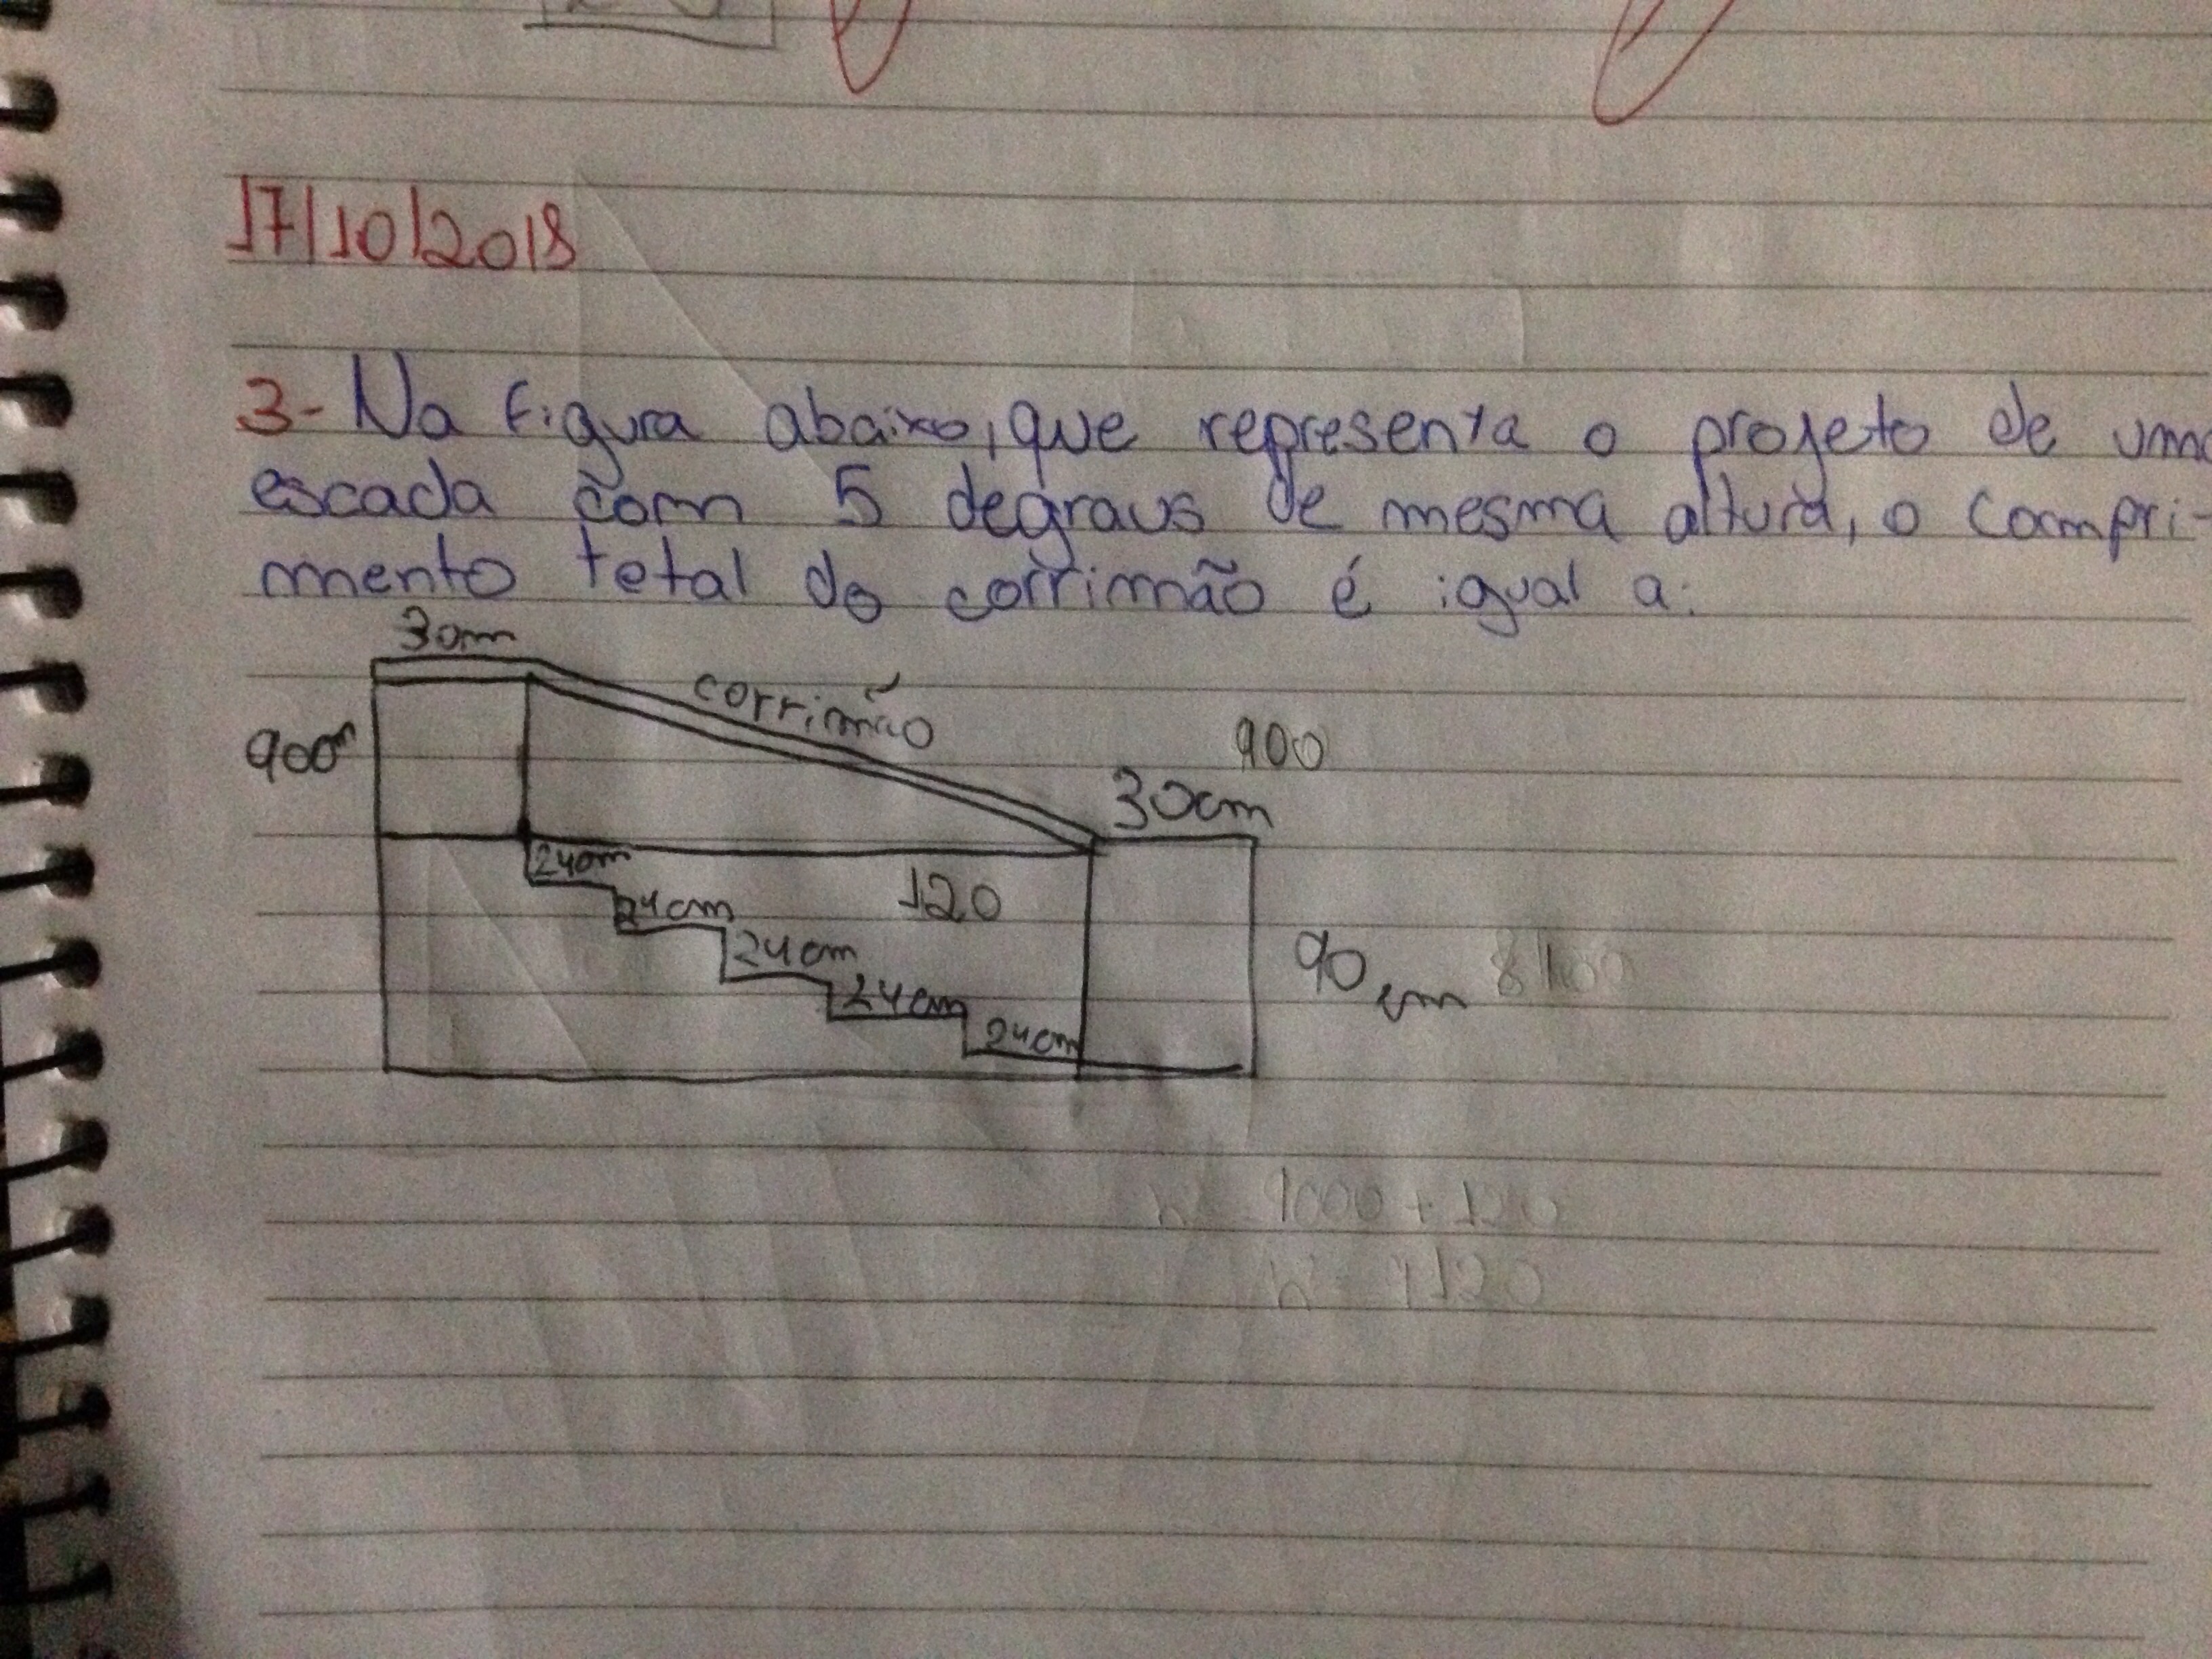 17/10/2018
3- Na figura abaixo, que representa o projeto de uma
escada com 5 degraus de mesma altura, o compri-
mento total do corrimão é igual a:
30cm
corrimão
90cm
900
30cm
24cm
24cm
120
24cm
90cm 8100
24cm
24cm
9000 + 120
9120